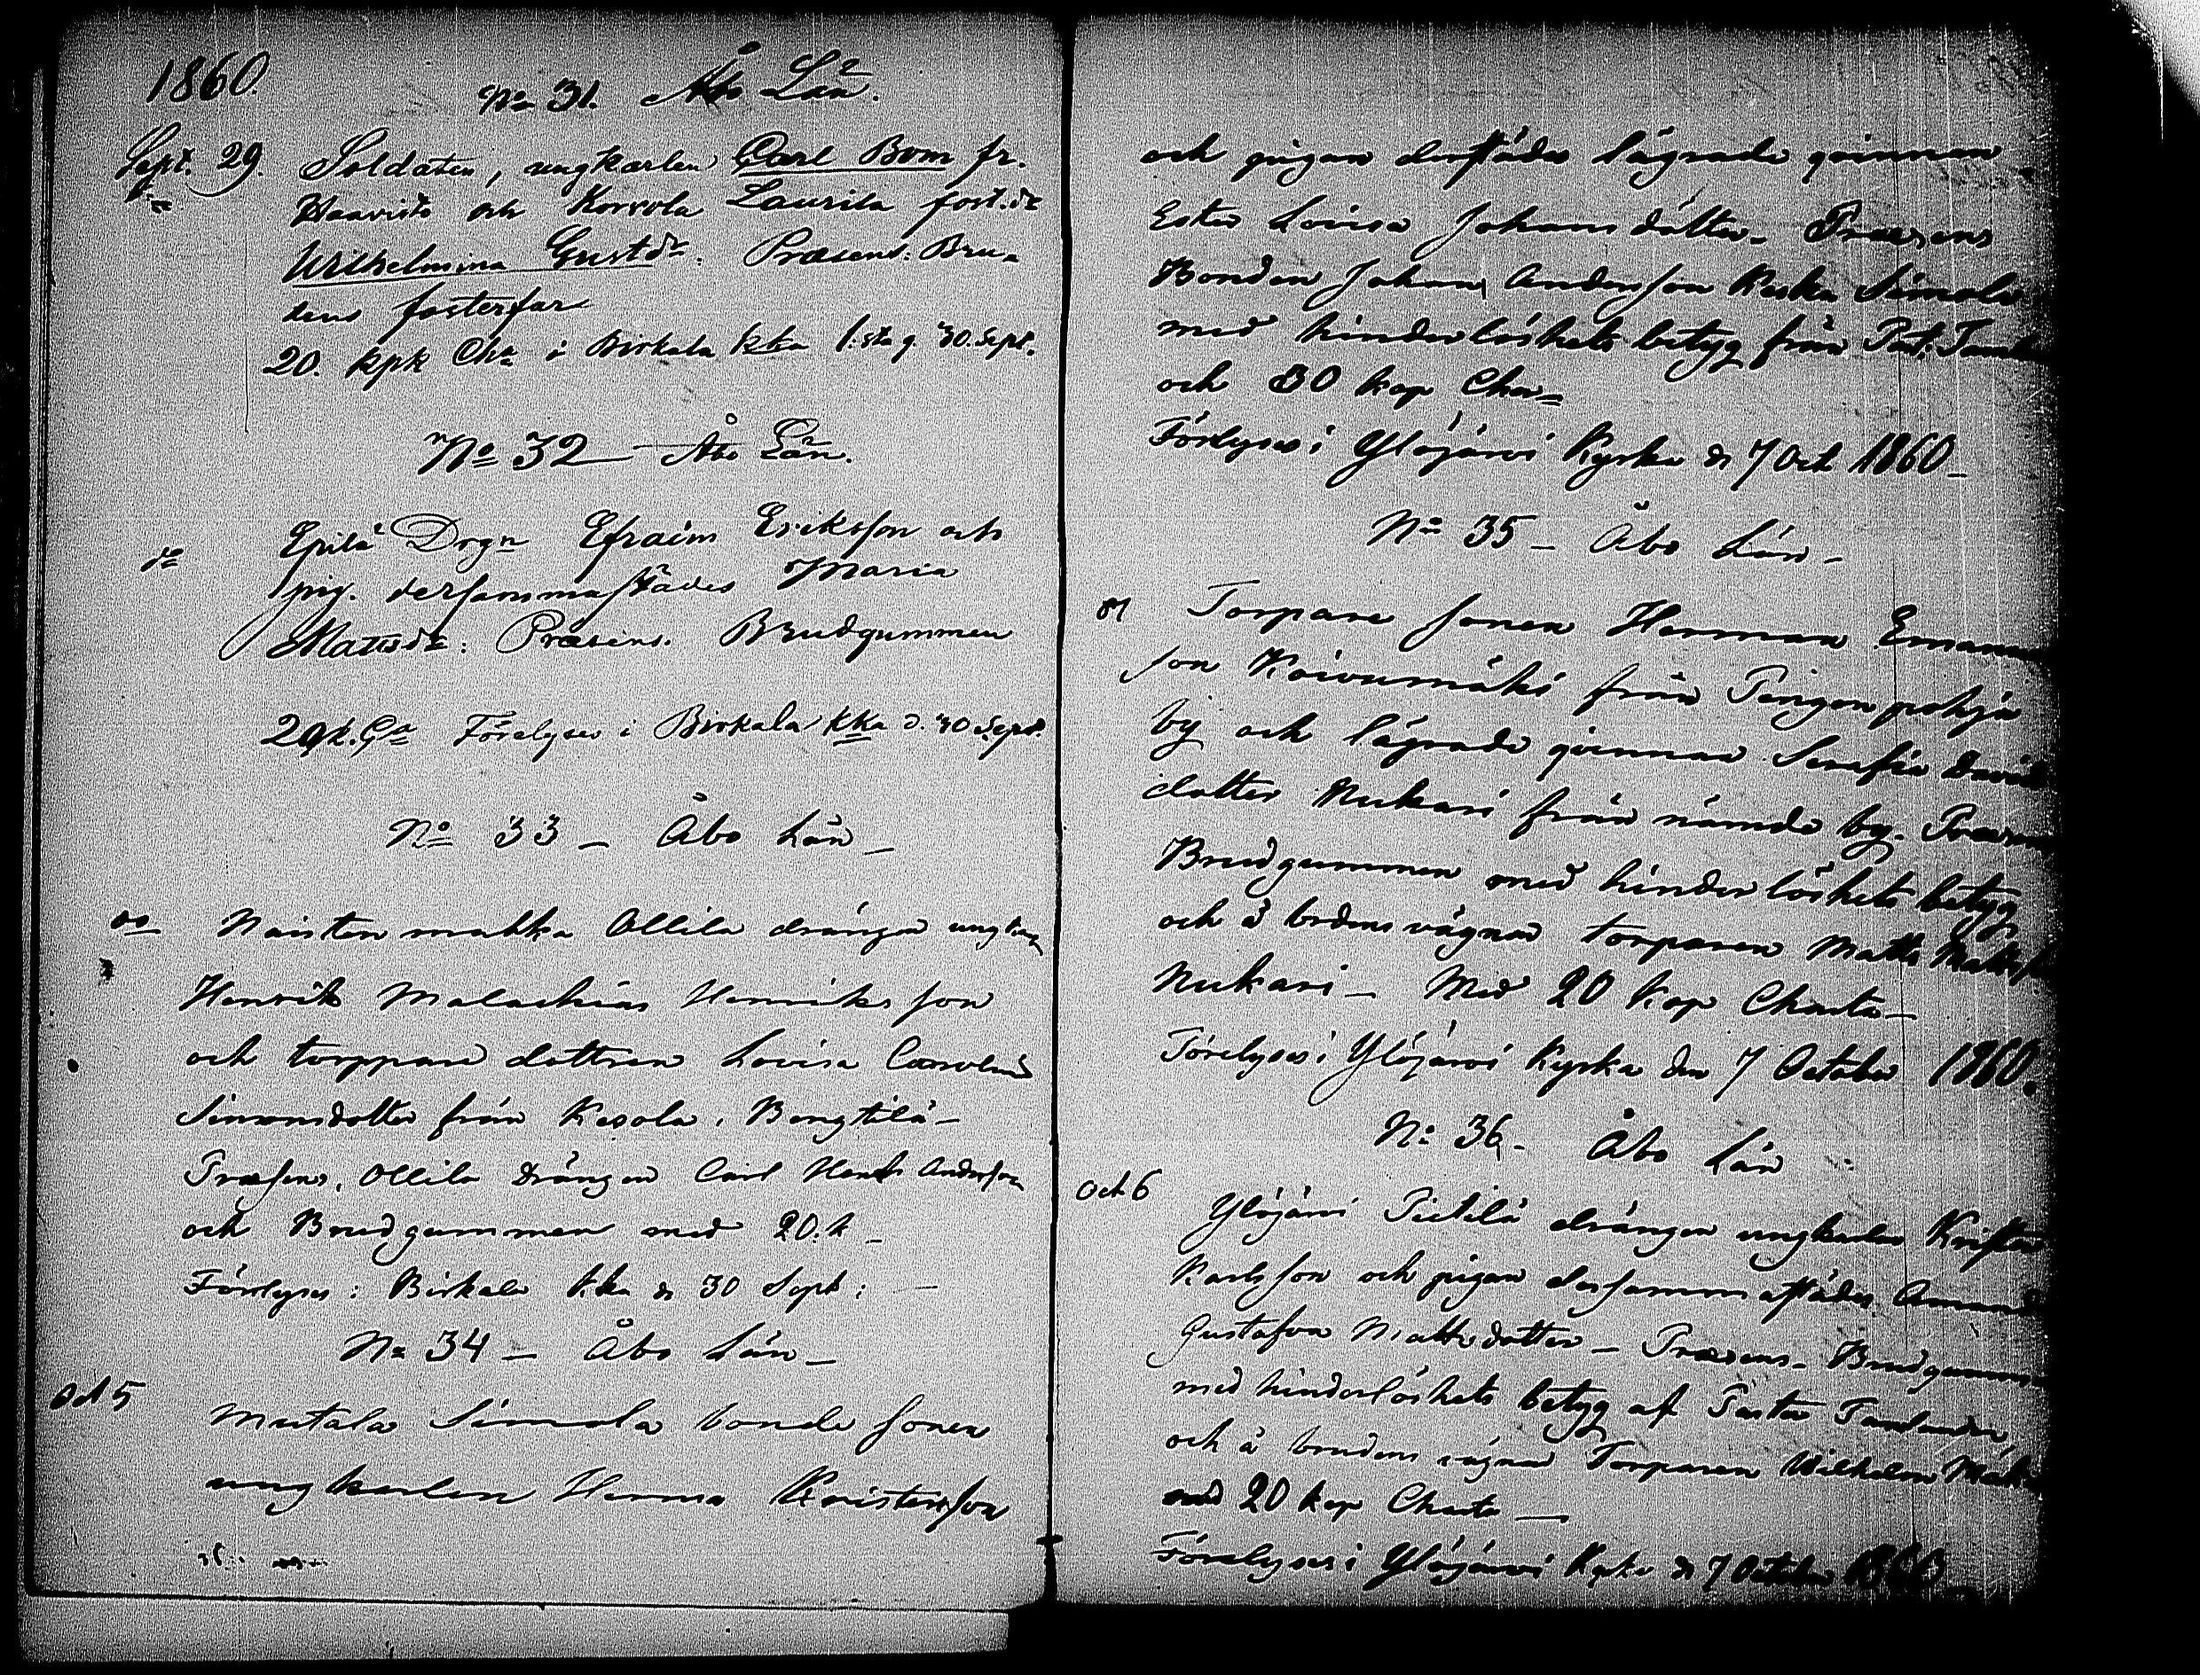 1860.
No 31. Åbo Län.
Sept. 29. Soldaten, ungkarlen Carl Bom fr.
Haavisto och Korvola Laurila fost.dr
Wilhelmina Gustdr. Præsens: Bru-
dens fosterfar
20. kpk Cha i Birkala kka 1:sta g. 30. Sept.
No 32 - Åbo Län.
do Epilä Drgn Efraim Eriksson och
pig. dersammastädes Maria
Mattsdr: Præsens. Brudgummen
20 k. Ca Förelyses i Birkala kka d. 30 Sept.
No 33 - Åbo Län -
do Naistenmatka Ollila drängen ungkarl
Henrik Malachias Henriksson
och torppare dottren Lovisa Carolina
Simonsdotter från Kesola, Bengtilä -
Præsens. Ollila Drängen Carl Henr Andersson
och Brudgummen med 20. k -
Förelyses i Birkala kka d 30 Sept: -
No 34 - Åbo Län -
Oct 5 Mutala Simola bonde sonen
ungkarlen Herman Kristersson
och pigan derstädes lägrade qvinnan
Ester Lovisa Johansdotter. Præsens
Bonden Johan Andersson Simola
med hinderlöshets betyg från Past.
och 30 kop Cha
Förelyses i Ylöjärvi Kyrka d 7 Oct 1860 -
No 35 - Åbo Län -
Torpare sonen Herman
son Koivumäki från Pengonpohja
by och lägrade qvinnan Serafia
dotter Nukari från nämde by.
Brudgummen med hinderlöshets betyg
och å brdens vägnar torparen Matts
Nukari - Med 20 kop Charta -
Förelyses i Ylöjärvi Kyrka den 7 October 1860.
No 36 - Åbo Län
Oct 6 Ylöjärvi Pietilä drängen ungkarlen
Karlsson och pigan dersammastädes
Gustafva Mattsdotter - Præsens. Brudgummen
med hinderlöshets betyg af Pastor Tamlander,
och å brudens vägnar Torparen Wilhelm
med 20 kop Charta -
Förelyses i Ylöjärvi Kyrka d 7 October 1860